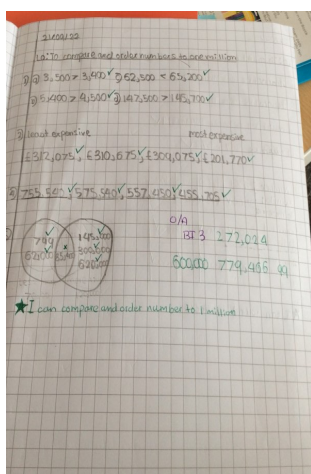 21/09/22
L.O: To compare and order numbers to one million
1) a) 3,500 > 3,400 ✓ c) 62,500 < 65,200 ✓
b) 5,400 > 4,500 ✓ d) 147,500 > 145,700 ✓
2) least expensive most expensive
£312,075 ✓, £310,675 ✓, £309,075 ✓, £201,770 ✓
3) 755,540 ✓, 575,540 ✓, 557,450 ✓, 455,705 ✓
799 145,000
300,000
620,000
O/A
272,024
600,000 779,456 99
★ I can compare and order number to 1 million